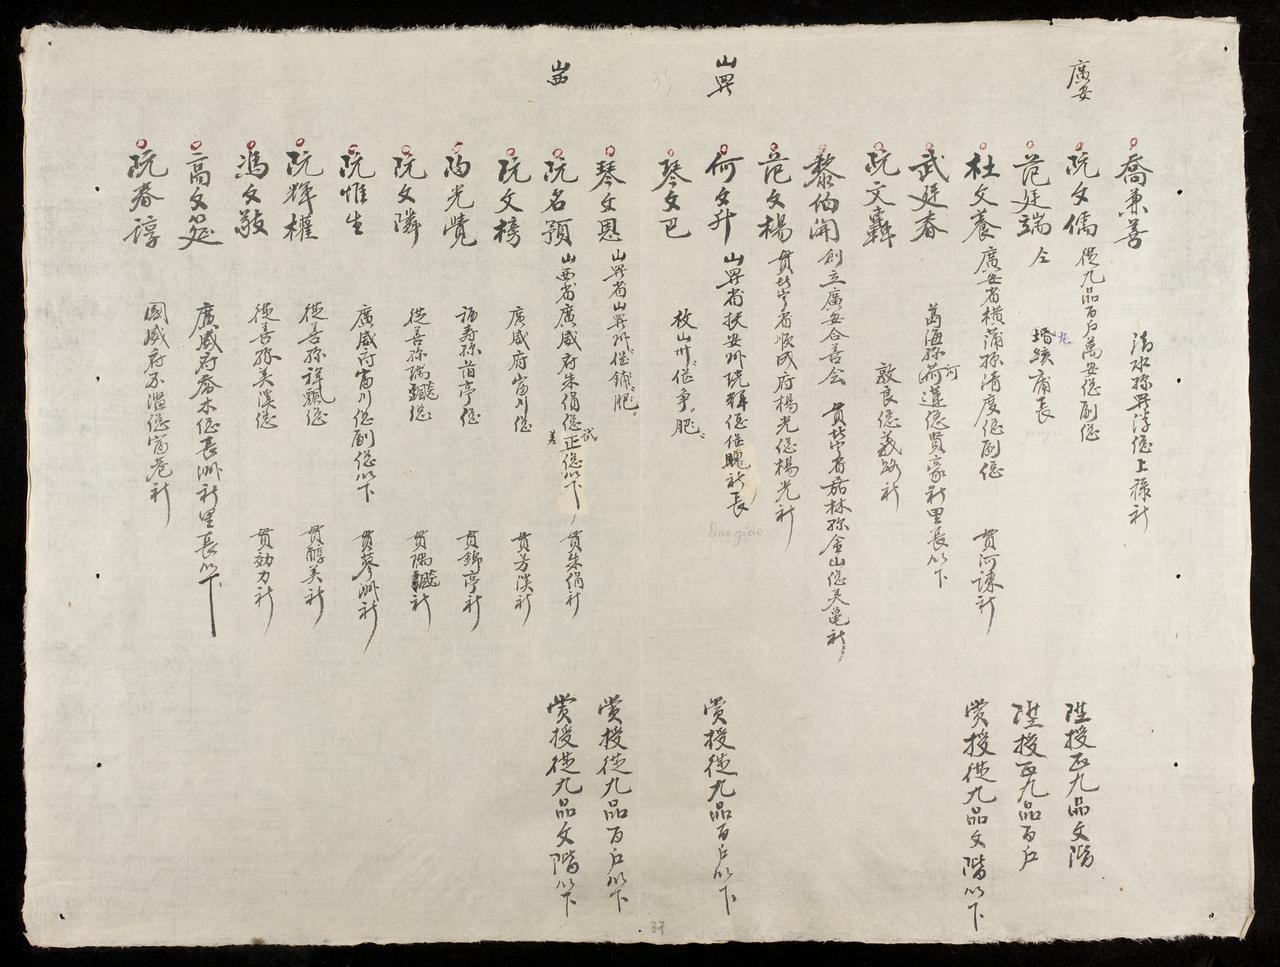 廣安
喬兼善 清水縣異浮總上祿社
阮文儒 從九品百戶萬安總副總 陞授正九品文階
范廷端 仝 總長 陞授正九品百戶
杜文養 廣安省橫蒲縣清度總副總 貫河諫社 賞授從九品文階以下
武廷春 萬海縣河蓮總賢豪社里長以下
阮文轟 敦良總義路社
黎伯開 創立廣安合善會 貫北寧省嘉林縣金山總灵龜社
范文楊 貫北寧省順成府楊光總楊光社
山興
何文升 山興省扶安州琥驛總社長 賞授從九品百戶以下
Dao giao
琴文巴 枚山州總爭肥
琴文恩 山興省山興州總鋪肥 賞授從九品百戶以下
山西
阮名預 山西省廣威府朱絹總正總以下 貫朱絹社 賞授從九品文階以下
試
差
阮文榜 廣威府富川總 貫芳淡社
陶光覺 福壽縣莤亭總 貫錦亭社
阮文隣 從善縣瑞飄總 貫瑞飄社
阮惟生 廣威府富川總副總以下 貫蓼洲社
阮輝權 從善縣祥飄總 貫醇美社
馮文敬 從善縣美溪總 貫効力社
高文筵 廣威府春木總長洲社里長以下
阮春諄 國威府不濫總富巷社
37